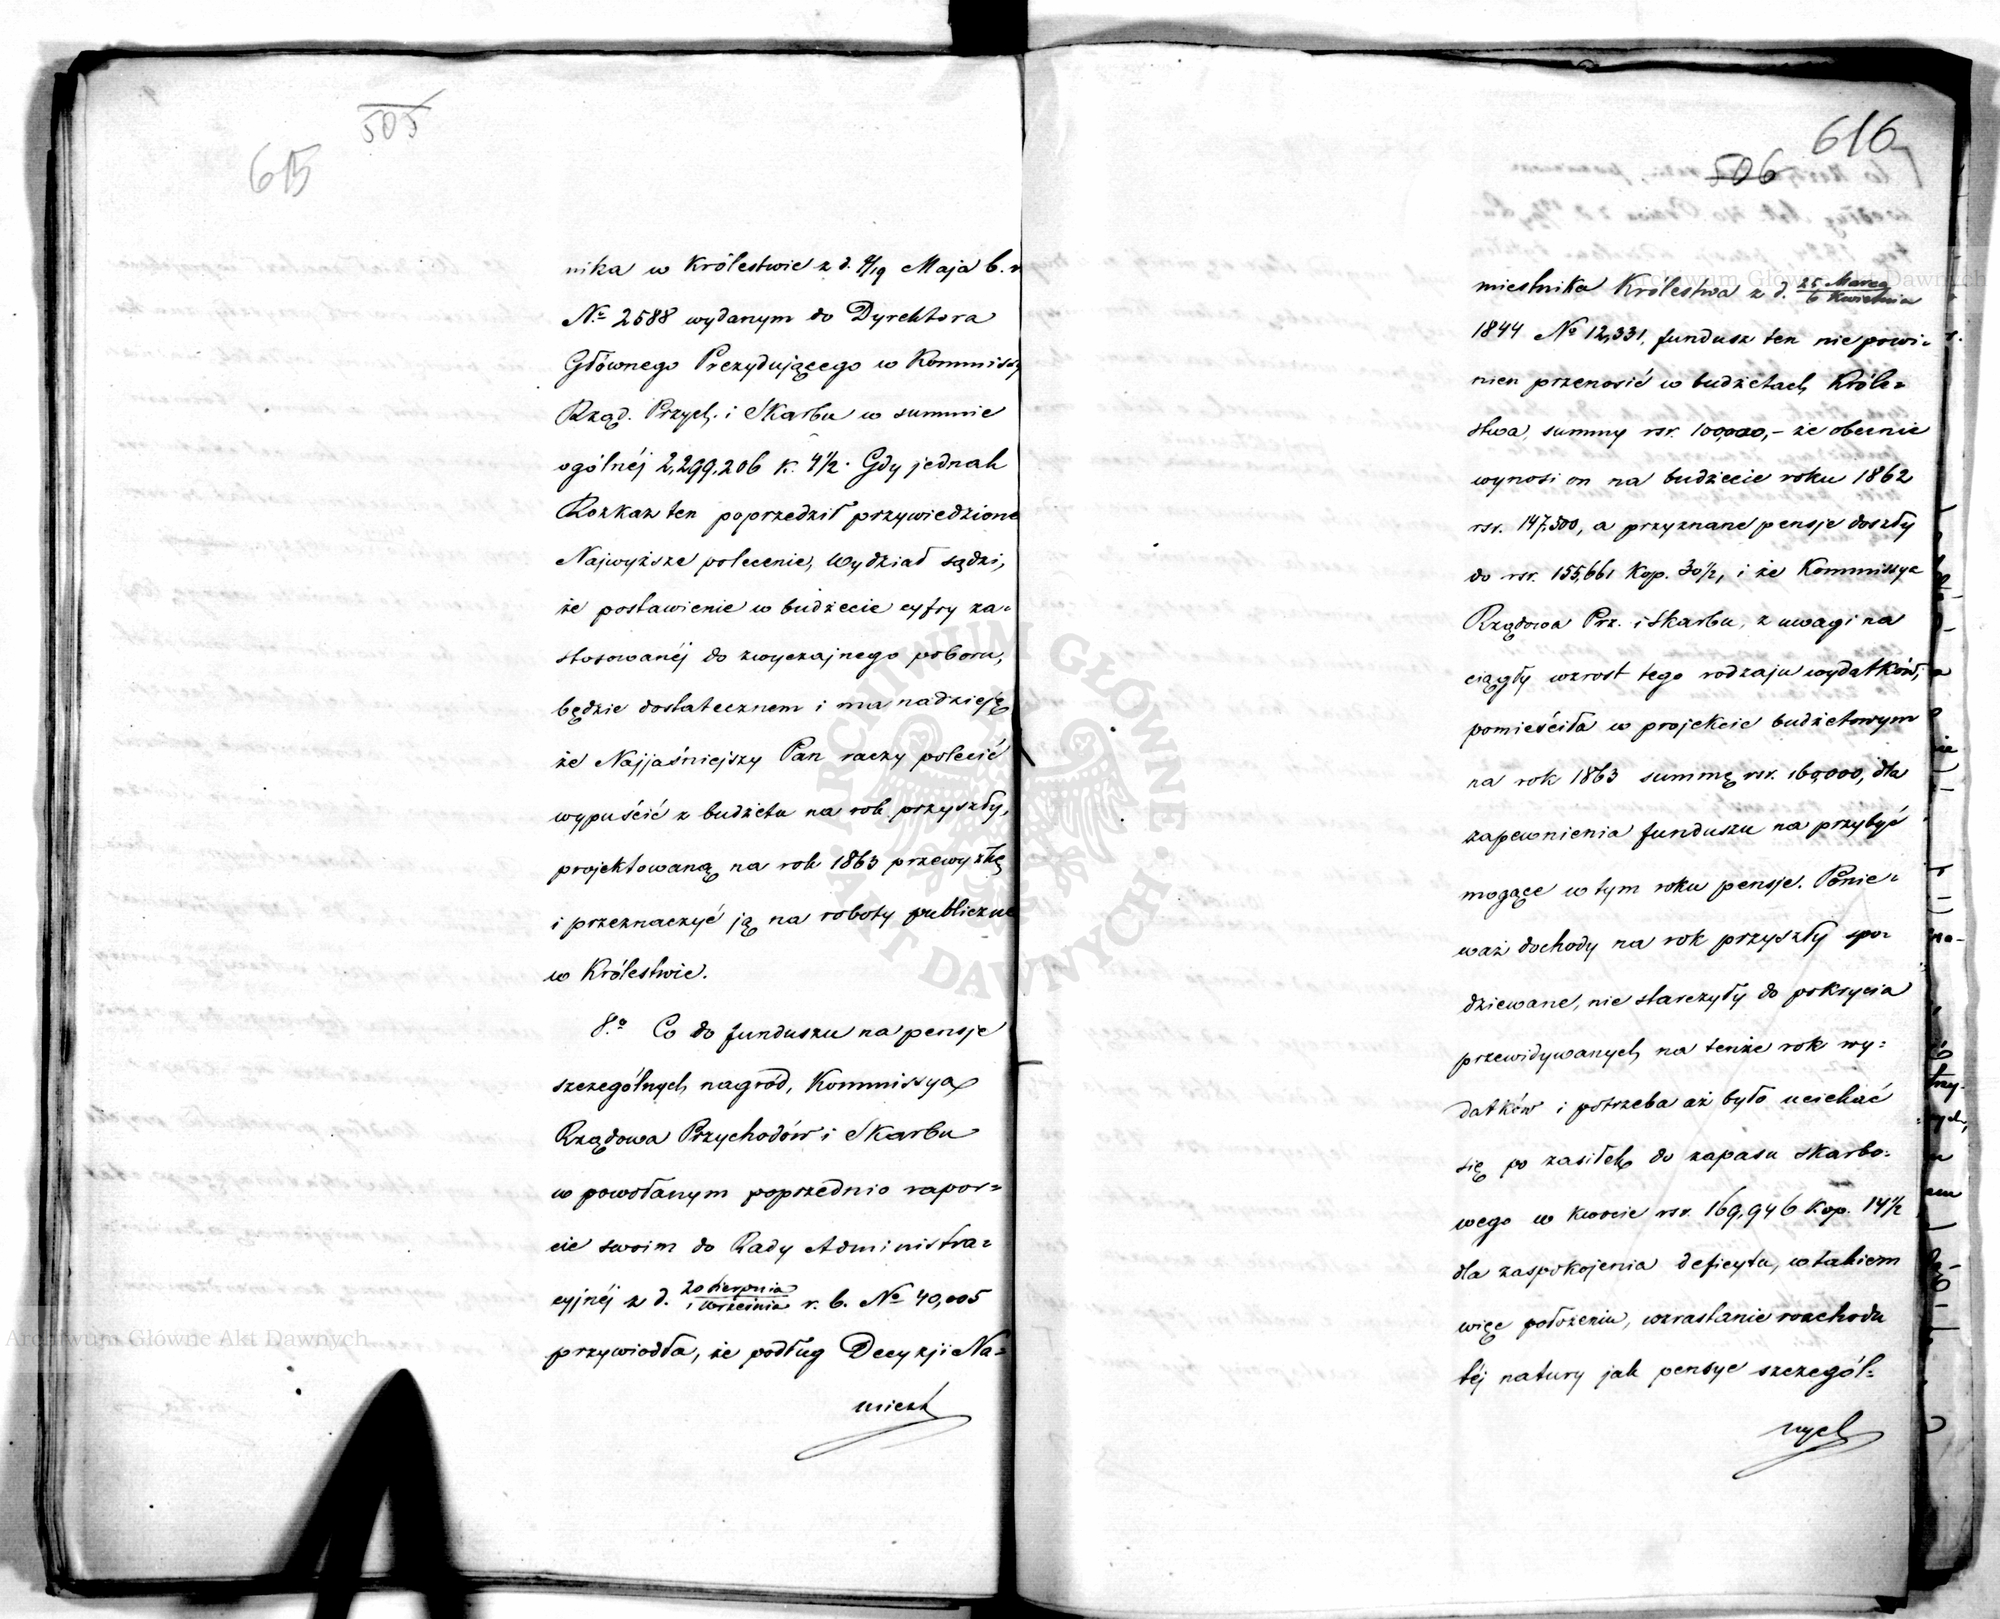 505
615
nika w Królestwie z d. 7/19 Maja b. r
No 2588 wydanym do Dyrektora
Głównego Prezydującego w Kommissy
Rząd. Przych. i Skarbu w summie
ogólnéj 2,299,206 k. 4½. Gdy jednak
Rozkaz ten poprzedził przywiedzione
Najwyższe polecenie, Wydział sądzi,
że postawienie w budżecie cyfry za=
stosowanéj do zwyczajnego poboru,
będzie dostatecznem i ma nadzieję
że Najjaśniejszy Pan raczy polecić
wypuścić z budżetu na rok przyszły,
projektowaną na rok 1863 przewyżkę
i przeznaczyć ją na roboty publiczne
w Królestwie.
8.o Co do funduszu na pensje
szczególnych nagród, Kommissya
Rządowa Przychodów i Skarbu
w powołanym poprzednio rapor=
cie swoim do Rady Administra=
cyjnéj z d. 20 Sierpnia/1 Września r. b. No 40,005
przywiodła, że podług Decyzji Na=
miest
616
506
miestnika Królestwa z d. 25 Marca/6 Kwietnia
1844 No 12,331, fundusz ten nie powi=
nien przenosić w budżetach Króle=
stwa, summy rsr. 100,000, – że obecnie
wynosi on na budżecie roku 1862
rsr. 147,500, a przyznane pensje doszły
do rsr. 155,661 Kop. 30½, i że Kommissya
Rządowa Prz. i Skarbu, z uwagi na
ciągły wzrost tego rodzaju wydatków,
pomieściła w projekcie budżetowym
na rok 1863 summę rsr. 160,000, dla
zapewnienia funduszu na przybyć
mogące w tym roku pensje. Ponie=
waż dochody na rok przyszły spo=
dziewane, nie starczyły do pokrycia
przewidywanych na tenże rok wy=
datków i potrzeba aż było uciekać
się po zasiłek do zapasu skarbo=
wego w kwocie rsr. 169,946 Kop. 14½
dla zaspokojenia deficytu, w takiem
więc położeniu, wzrastanie rozchodu
téj natury jak pensye szczegól=
nych
ARCHIWUM GŁÓWNE AKT DAWNYCH
Archiwum Główne Akt Dawnych
Archiwum Główne Akt Dawnych